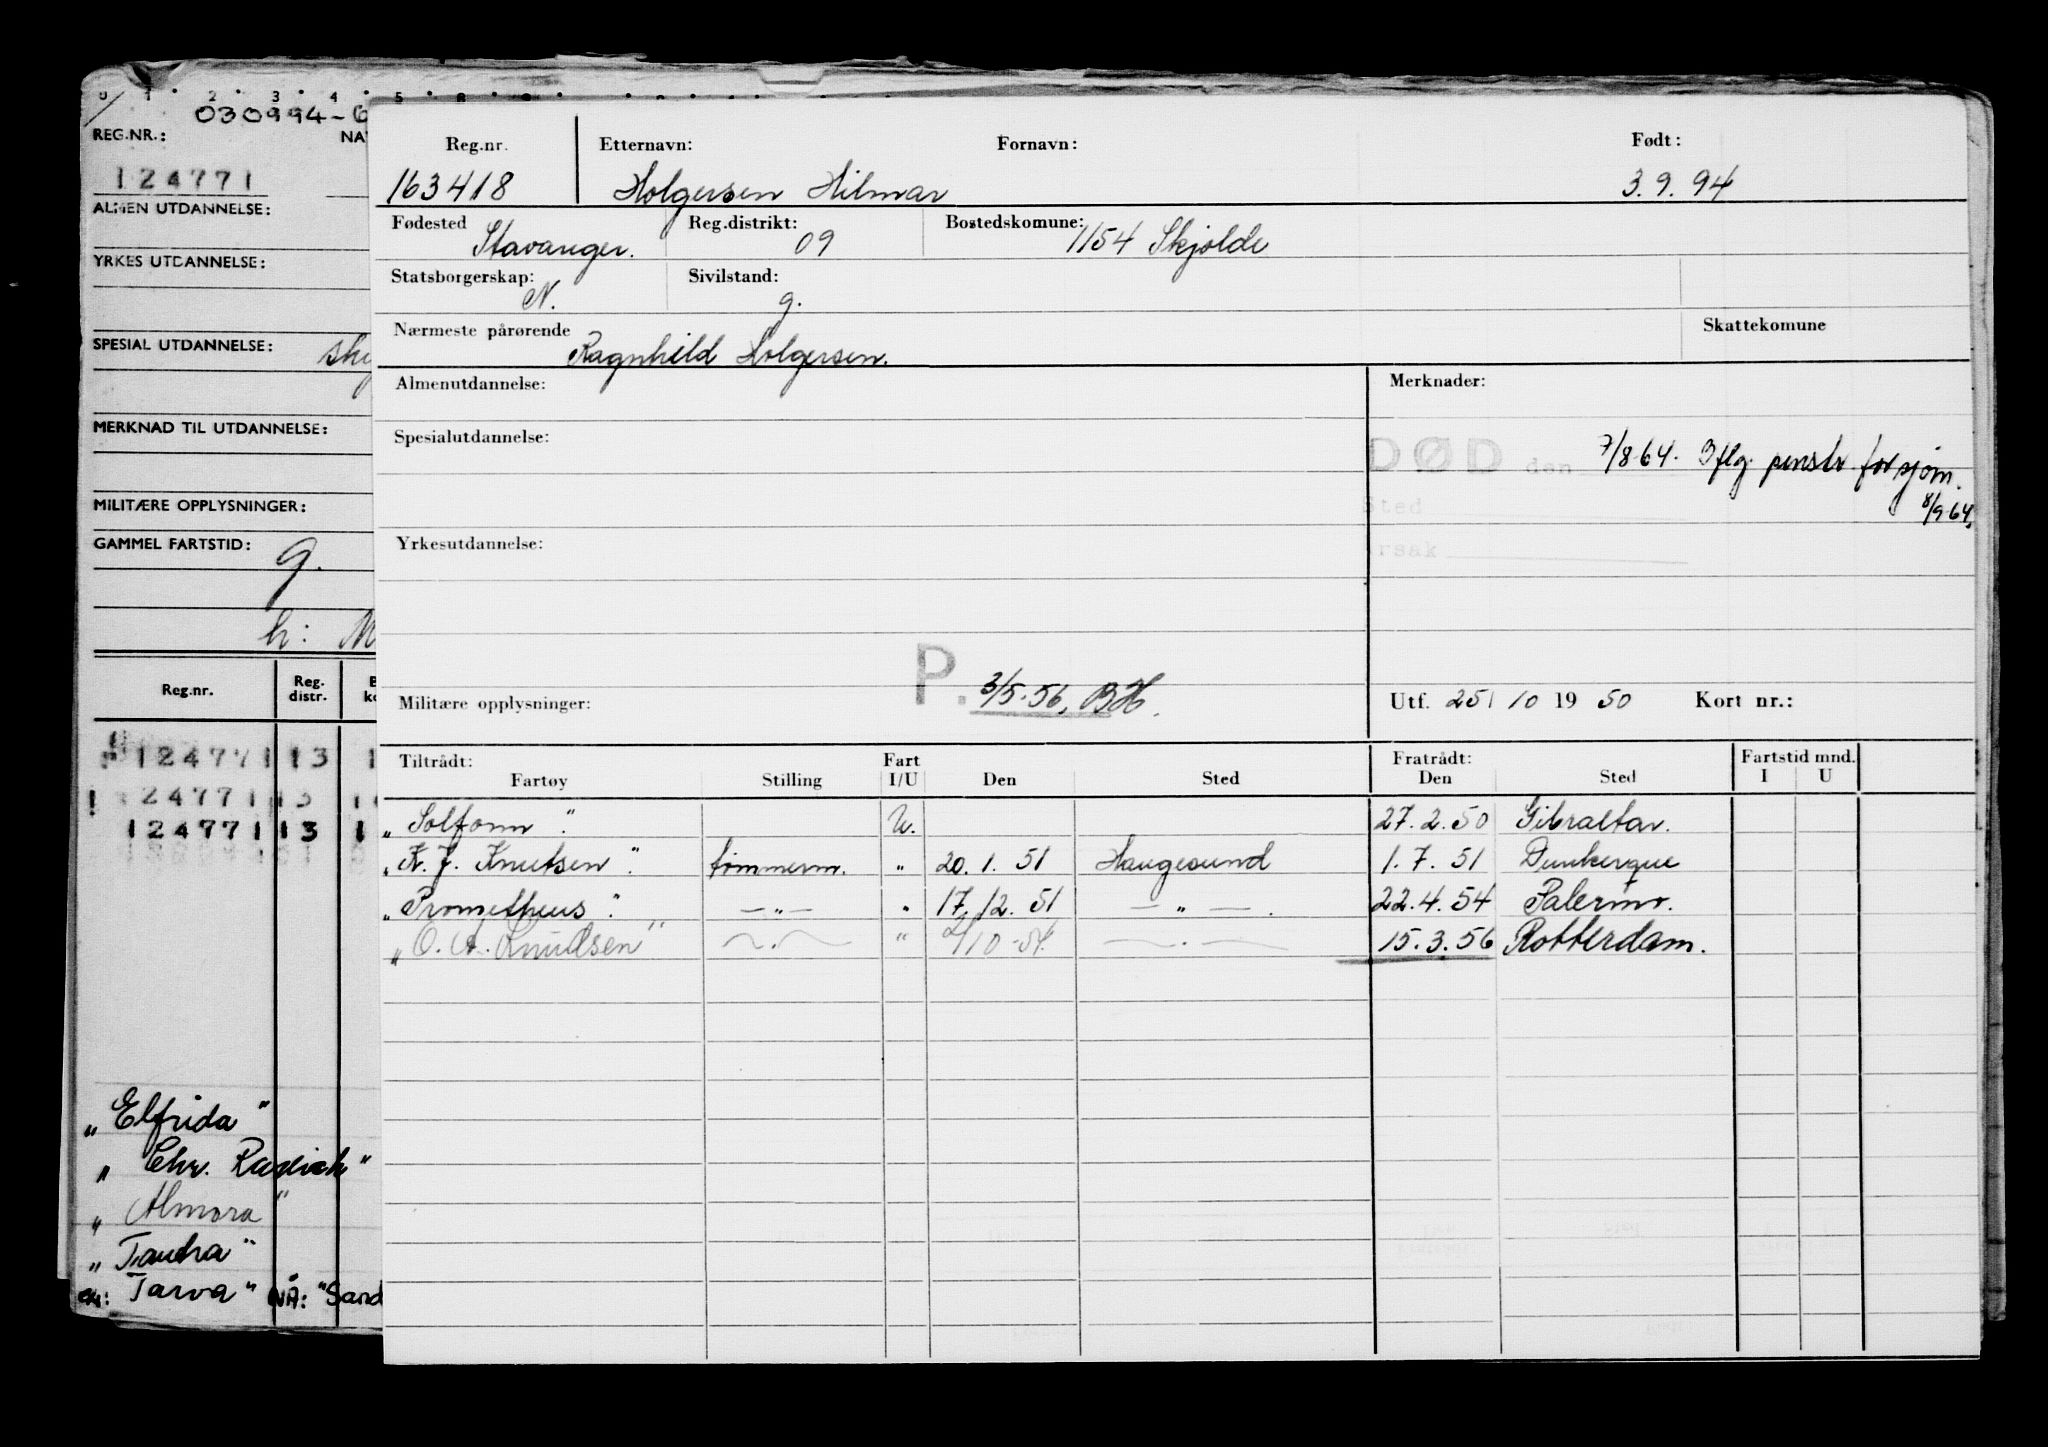 030994-6
REG.NR.: NA
124771
ALMEN UTDANNELSE:
YRKES UTDANNELSE:
SPESIAL UTDANNELSE:
MERKNAD TIL UTDANNELSE:
MILITÆRE OPPLYSNINGER:
GAMMEL FARTSTID: g.
h: M
Reg.nr. Reg. distr.
124771 13 1
24771 13 1
124771 13 1
"Elfrida"
"Chr. Radich"
"Almora"
"Tautra"
"Tarva" NÅ: "Sand
Reg.nr. Etternavn: Fornavn: Født:
163418 Holgersen Hilmar 3.9.94
Fødested Stavanger. Reg.distrikt: 09 Bostedskomune: 1154 Skjolde
Statsborgerskap: N. Sivilstand: g.
Nærmeste pårørende Ragnhild Holgersen. Skattekomune
Almenutdannelse: Merknader:
Spesialutdannelse: DØD den 7/8 64. Iflg. penstr. for sjøm. 8/9 64.
Sted
Yrkesutdannelse: rsak
P. 3/5-56, BH.
Militære opplysninger: Utf. 25/10 1950 Kort nr.:
Tiltrådt: Fart Fratrådt: Fartstid mnd.
Fartøy Stilling I/U Den Sted Den Sted I U
"Solfonn" U. 27.2.50 Gibraltar.
"K. J. Knutsen" tømmerm. " 20.1.51 Haugesund 1.7.51 Dunkerque
"Prometheus" — " — " 17.12.51 — " — . 22.4.54 Palermo.
"O. A. Knudsen" " 15.3.56 Rotterdam.